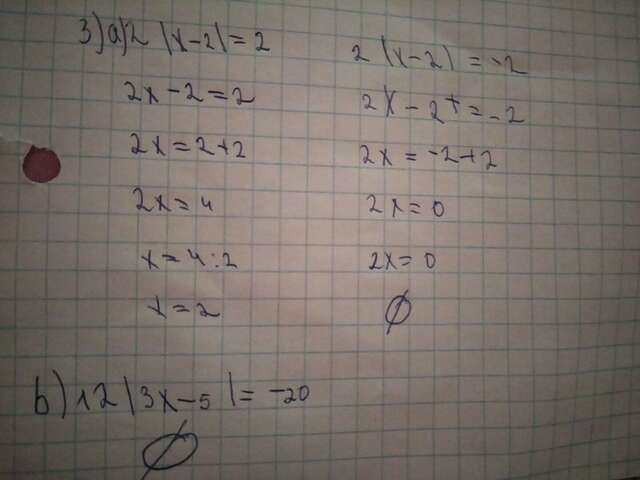 3) a) 2 |x-2| = 2
2x - 2 = 2
2x = 2+2
2x = 4
x = 4:2
x = 2
2 |x-2| = -2
2x - 2 = -2
2x = -2+2
2x = 0
2x = 0
∅
b) 12 |3x-5| = -20
∅